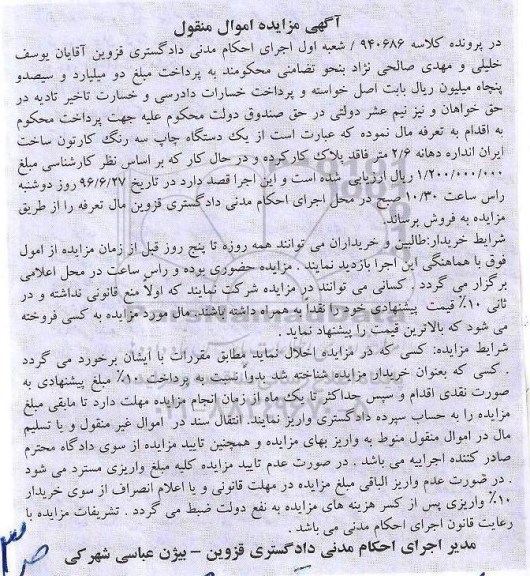 آگهی مزایده اموال منقول
در پرونده کلاسه ۹۴۰۶۸۶ / شعبه اول اجرای احکام مدنی دادگستری قزوین آقایان یوسف
خلیلی و مهدی صالحی نژاد بنحو تضامنی محکومند به پرداخت مبلغ دو میلیارد و سیصدو
پنجاه میلیون ریال بابت اصل خواسته و پرداخت خسارات دادرسی و خسارت تاخیر تادیه در
حق خواهان و نیز نیم عشر دولتی در حق صندوق دولت محکوم علیه جهت پرداخت محکوم
به اقدام به تعرفه مال نموده که عبارت است از یک دستگاه چاپ سه رنگ کارتون ساخت
ایران انداره دهانه ۲/۶ متر فاقد پلاک کارکرده و در حال کار که بر اساس نظر کارشناسی مبلغ
۱/۲۰۰/۰۰۰/۰۰۰ ریال ارزیابی شده است و این اجرا قصد دارد در تاریخ ۹۶/۶/۲۷ روز دوشنبه
راس ساعت ۱۰/۳۰ صبح در محل اجرای احکام مدنی دادگستری قزوین مال تعرفه را از طریق
مزایده به فروش برساند.
شرایط خریدار:طالبین و خریداران می توانند همه روزه تا پنج روز قبل از زمان مزایده از امول
فوق با هماهنگی این اجرا بازدید نمایند . مزایده حضوری بوده و راس ساعت در محل اعلامی
برگزار می گردد . کسانی می توانند در مزایده شرکت نمایند که اولاً منع قانونی نداشته و در
ثانی ۱۰٪ قیمت پیشنهادی خود را نقداً به همراه داشته باشند. مال مورد مزایده به کسی فروخته
می شود که بالاترین قیمت را پیشنهاد نماید .
شرایط مزایده: کسی که در مزایده اخلال نماید مطابق مقررات با ایشان برخورد می گردد
. کسی که بعنوان خریدار مزایده شناخته شد بدواً نسبت به پرداخت ۱۰٪ مبلغ پیشنهادی به
صورت نقدی اقدام و سپس حداکثر تا یک ماه از زمان انجام مزایده مهلت دارد تا مابقی مبلغ
مزایده را به حساب سپرده دادگستری واریز نمایند. انتقال سند در اموال غیر منقول و یا تسلیم
مال در اموال منقول منوط به واریز بهای مزایده و همچنین تایید مزایده از سوی دادگاه محترم
صادر کننده اجراییه می باشد . در صورت عدم تایید مزایده کلیه مبلغ واریزی مسترد می شود
. در صورت عدم واریز الباقی مبلغ مزایده در مهلت قانونی و یا اعلام انصراف از سوی خریدار
۱۰٪ واریزی پس از کسر هزینه های مزایده به نفع دولت ضبط می گردد . تشریفات مزایده با
رعایت قانون اجرای احکام مدنی می باشد .
مدیر اجرای احکام مدنی دادگستری قزوین - بیژن عباسی شهرکی